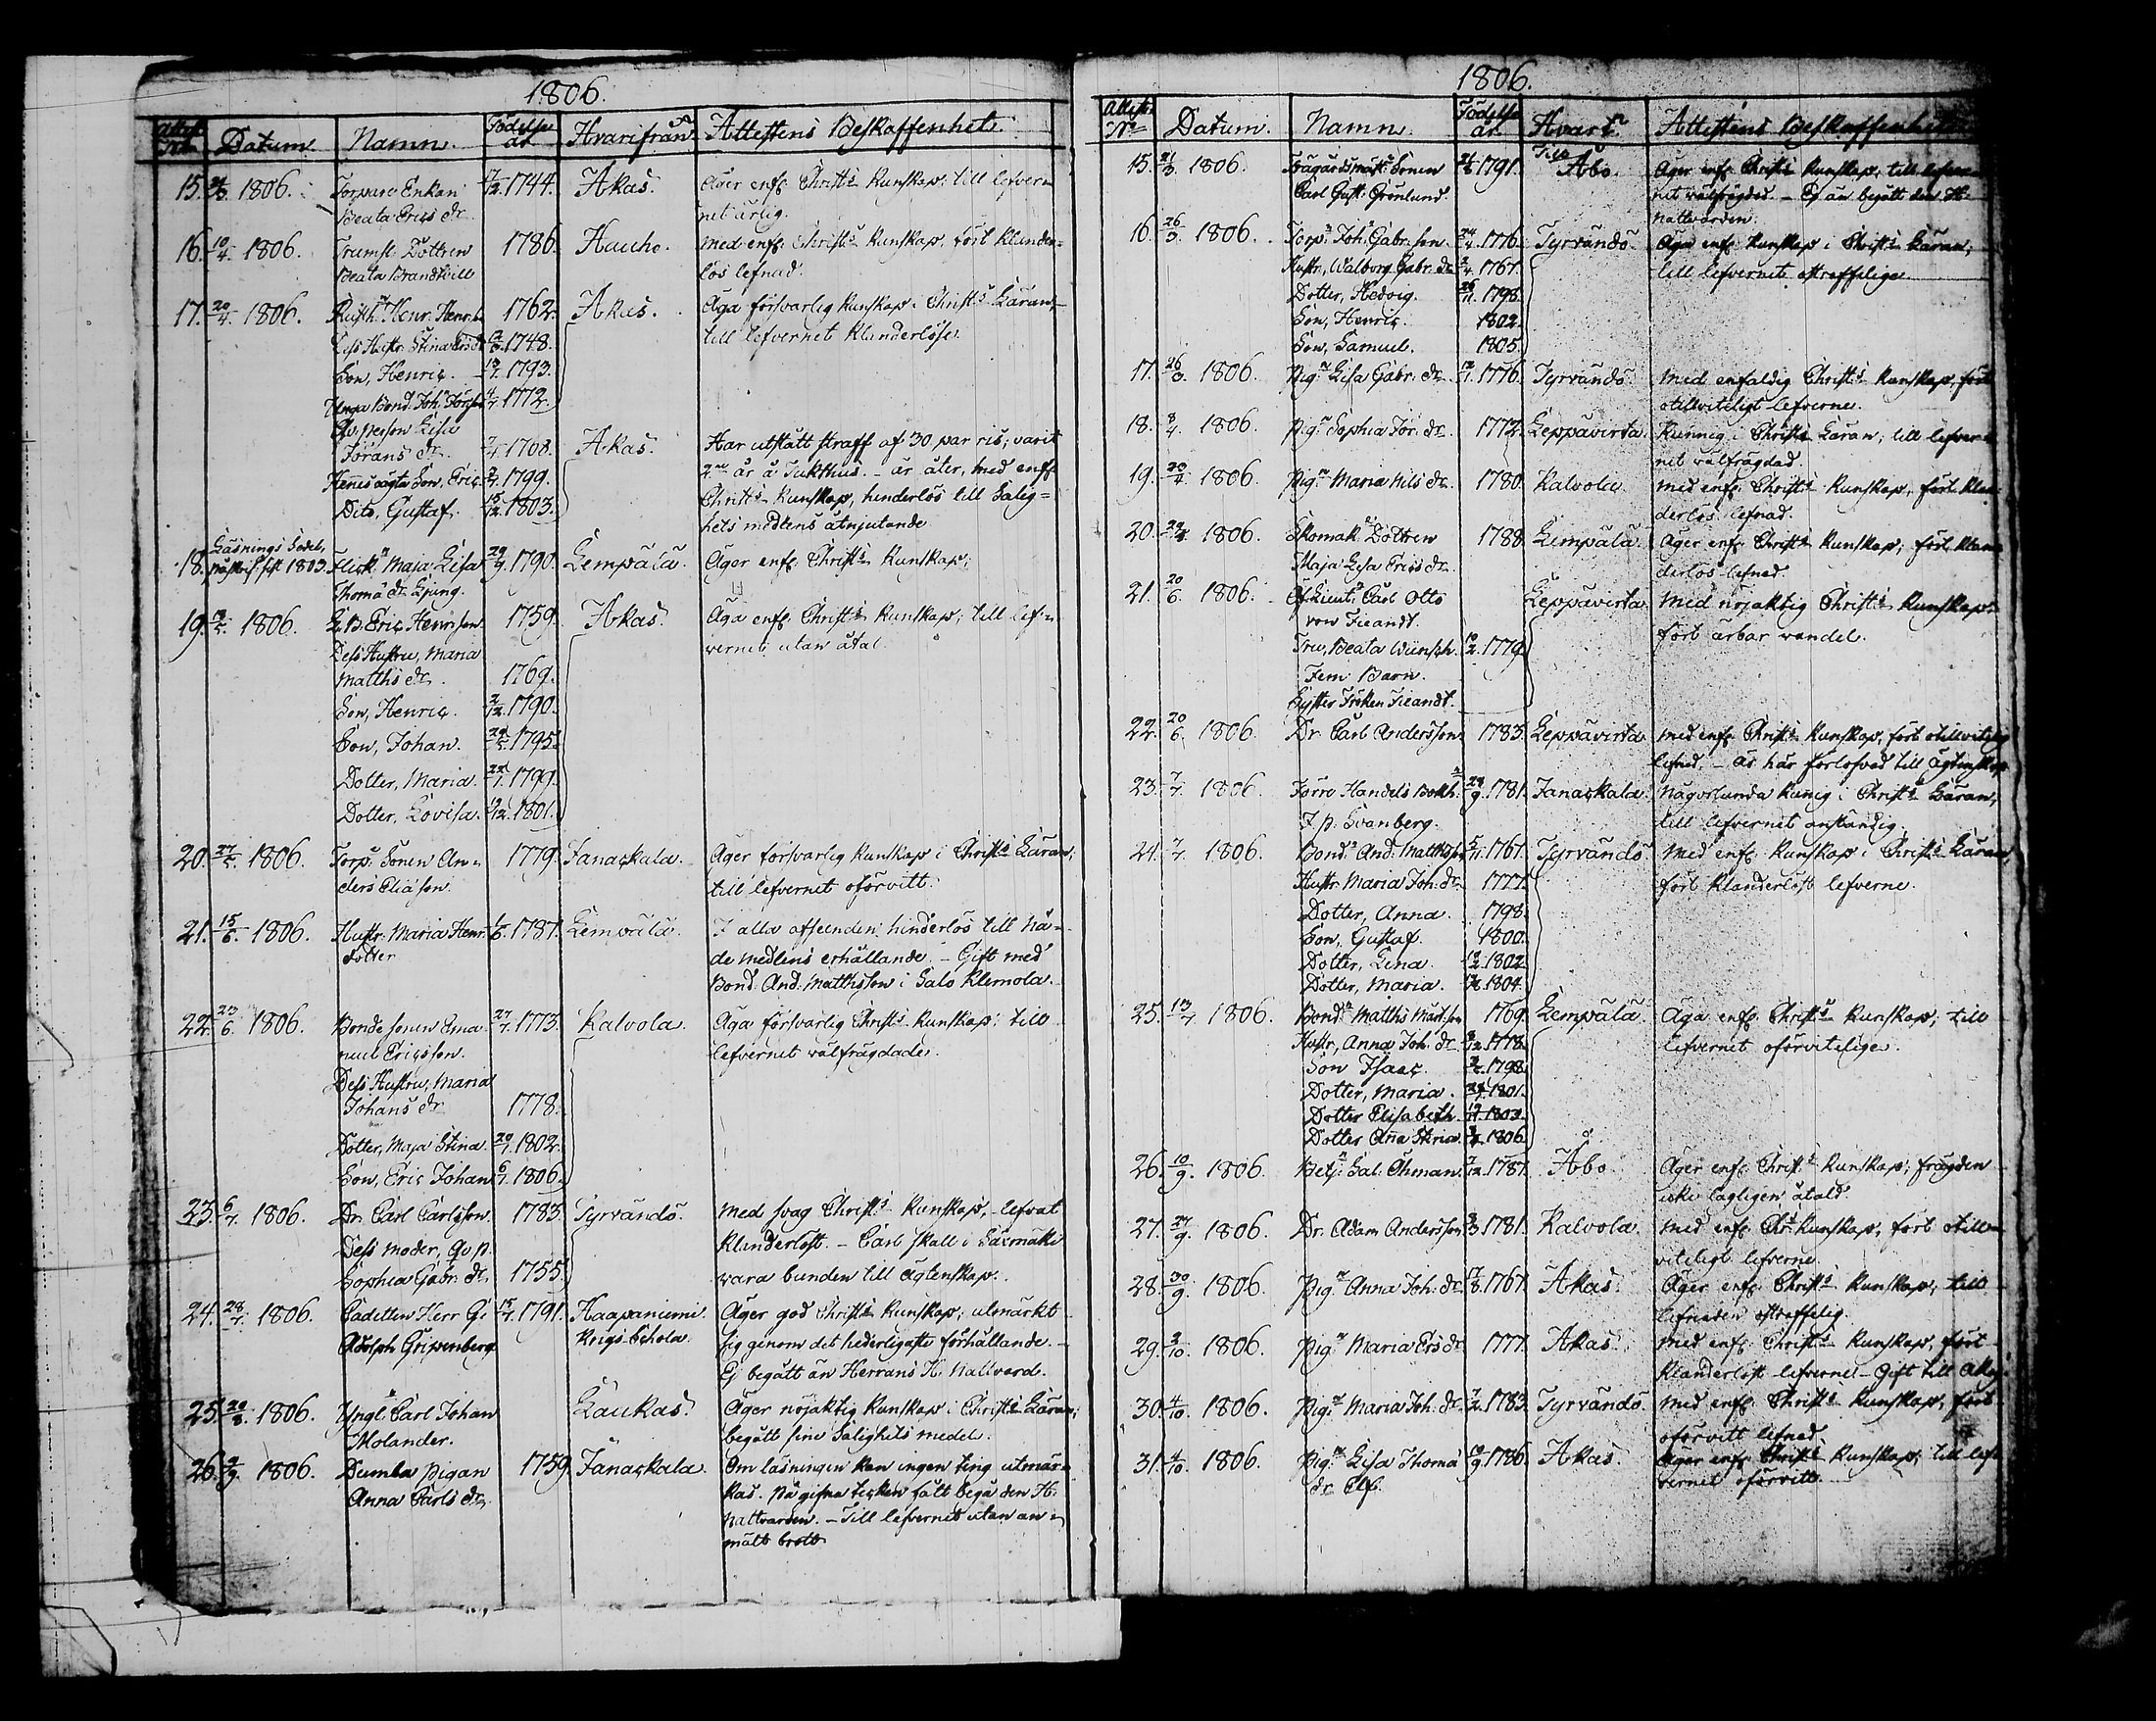 1806.
Attest. No. Datum. Namn. Födelse år Hvarifrån Attestens Beskaffenhet.
15. 1806. Torpare Enkan 1744. Akas. Äger enf. Christ:s Kunskap; till lefver-
Beata Erics dr. net ärlig.
16. 10/4. 1806. Trumsl. Dottren 1786. Hauho. Med enf. Christ:s Kunskap, fört klander-
Beata Brandhill lös lefnad.
17. 20/4. 1806. Henr. Henr.s. 1762. Akas. Äga försvarlig Kunskap i Christ:s Läran,
Dess Hustr. Stina 1748. till lefvernet klanderlöse.
Son, Henric. 1793.
Unga Bond. Joh. 1772.
Qv. person Lisa
Görans dr. 1768. Akas. Har utstått straff af 30 par ris; varit
Hennes oägta Son, Eric. 1799. 2ne år å Tukthus. – är åter, med enf.
Dito, Gustaf. 1803. Christ:s Kunskap, hinderlös till Salig=
hets medlens åtnjutande.
18. Läsnings Sedel, 1803. Flick. Maja Lisa 29/9. 1790. Lempälä. Äger enf. Christ:s Kunskap;
Thomä dr. Ljung.
19. 1806. Eric Henricson. 1759. Akas. Äga enf. Christ:s Kunskap; till lef-
Dess Hustru, Maria vernet utan åtal.
Matths dr. 1769.
Son, Henric. 2/12. 1790.
Son, Johan. 1795.
Dotter, Maria. 1799.
Dotter, Lovisa. 1801.
20. 27/5. 1806. Torp. Sonen An- 1779. Janackala. Äger försvarlig Kunskap i Christ:s Läran;
ders Eliäson. till lefvernet oförvitt.
21. 15/6. 1806. Hustr. Maria Henr. 1/6. 1787. Lempälä. I alla afseenden, hinderlös till Nå-
dotter de medlens erhållande. – Gift med
Bond. And. Matthsson i Salo Klemola.
22. 23/6. 1806. Bonde sonen Ema- 27/7. 1773. Kalvola. Äga försvarlig Christ:s Kunskap; till
nuel Ericsson. lefvernet välfrägdade.
Dess Hustru, Maria
Johans dr. 1778.
Dotter, Maja Stina. 20/7. 1802.
Son, Eric Johan 6/7. 1806.
23. 6/7. 1806. Dr. Carl Carlsson. 1783. Tyrvändö. Med svag Christ:s Kunskap, lefvat
Dess moder, Qv. p. klanderlöst. – Carl skall i Säxmäki
Sophia Gabr. dr. 1755. vara bunden till ägtenskap.
24. 28/7. 1806. Cadetten Herr G. 1791. Haapaniemi Äger god Christ:s Kunskap; utmärkt
Adolph Gripenberg Krigs Schola. sig genom det hederligaste förhållande. –
Ej begått än Herrans H. Nattvard.
25. 20/8. 1806. Yngl. Carl Johan Laukas. Äger nöjaktig Kunskap i Christ:s Läran;
Molander. begått sine Salighets medel.
26. 2/9. 1806. Dumba Pigan 1759. Janackala. Om läsningen kan ingen ting utmär-
Anna Carls dr. kas. På gifna tecken fått begå den H.
Nattvarden. – Till lefvernet utan an-
mält brott
1806.
Attest. No. Datum. Namn. Födelse år Hvart. Attestens Beskaffenhet
Till
15. 21/3. 1806. Trägårdsmäst. Sonen 1791. Åbo. Äger enf. Christ:s Kunskap; till lefver-
Carl Gust. Grönlund. net välfrägdad. – Ej än begått den H.
Nattvarden.
16. 26/3. 1806. Torp. Joh. Gabr. son. 24/4. 1776. Tyrvändö. Äga enf. Kunskap i Christ:s Läran;
Hustr, Walborg Gabr. dr. 1767. till lefvernet ostraffelige.
Dotter, Hedvig. 26/11. 1798.
Son, Henric. 1802.
Son, Samuel. 1805.
17. 26/3. 1806. Pig. Lisa Gabr. dr. 1776. Tyrvändö. Med enfaldig Christ:s Kunskap, fört
otillviteligt lefverne.
18. 8/4. 1806. Pig. Sophia Jör. dr. 1772. Leppävirta. Kunnig i Christ:s Läran; till lefver-
net välfrägdad.
19. 20/4. 1806. Pig. Maria Nils dr. 1780. Kalvola. Med enf. Christ:s Kunskap, fört klan-
derlös lefnad.
20. 1806. Skomak. Dottren 1788. Lempälä. Äger enf. Christ:s Kunskap; fört klan-
Maja Lisa Erics dr. derlös lefnad.
21. 20/6. 1806. Carl Otto Leppävirta. Med nöjaktig Christ:s Kunskap
von Fieandt. fört ärbar vandel.
Fru, Beata Wünsch. 10/2. 1779.
Fem Barn.
Syster Fröken Fieandt.
22. 20/6. 1806. Dr. Carl Andersson 1783. Leppävirta. Med enf. Christ:s Kunskap, fört otillvitelig
lefnad. – Är här förlofvad till Ägtenskap
23. 7/7. 1806. Förre Handels Bokh. 28/9. 1781. Janackala. Någorlunda kunnig i Christ:s Läran,
J. p. Svanberg. till lefvernet anständig.
24. 7/7. 1806. Bond. And. Matthsson 1767. Tyrvändö. Med enf. Kunskap i Christ:s Läran,
Hustr. Maria Joh. dr. 1777. fört klanderlöst lefverne.
Dotter, Anna. 1798.
Son, Gustaf. 1800.
Dotter, Lena. 1802.
Dotter, Maria. 1804.
25. 13/7. 1806. Bond. Matths Mårtsson 1769. Lempälä. Äga enf. Christ:s Kunskap; till
Hustr, Anna Joh. dr. 1778. lefvernet oförvitelige.
Son Isaac. 1798.
Dotter, Maria. 1801.
Dotter Elisabeth. 1803.
Dotter Anna Stina. 1806.
26. 10/9. 1806. Betj. Sal. Öhman. 7/12. 1787. Åbo. Äger enf. Christ:s Kunskap; frägden
icke lagligen åtald.
27. 27/9. 1806. Dr. Adam Andersson. 1781. Kalvola. Med enf. Chr:s Kunskap, fört otill-
viteligt lefverne.
28. 30/9. 1806. Pig. Anna Joh. dr. 17/8. 1767. Akas. Äger enf. Christ:s Kunskap, till
lefnaden ostraffelig.
29. 2/10. 1806. Pig. Maria Ers dr. 1777. Akas. Med enf. Christ:s Kunskap, fört
klanderlöst lefverne – Gift till Akas.
30. 4/10. 1806. Pig. Maria Joh. dr. 1783. Tyrvändö. Med enf. Christ:s Kunskap, fört
oförvitt lefnad
31. 4/10. 1806. Pig. Lisa Thomä 1786. Akas. Äger enf. Christ:s Kunskap; till lef-
dr. Elf. vernet oförvitt.